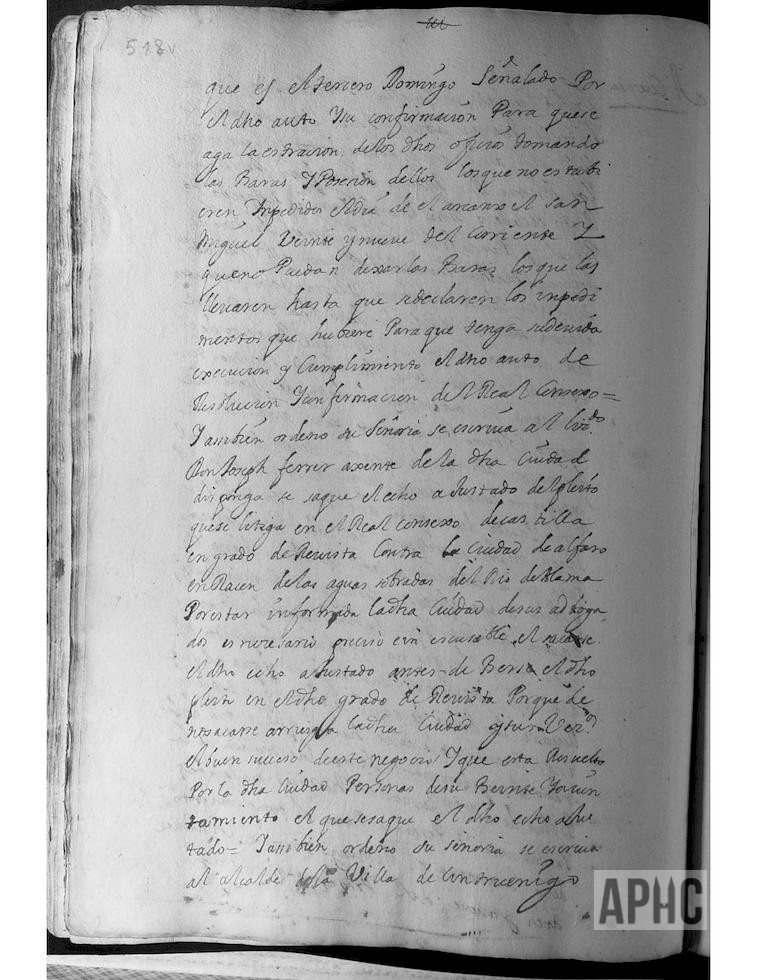 518v
que es el tercero Domingo Señalado Por
el dho auto Y su confirmacion Para que se
aga la estracion de los dhos oficios tomando
las Baras Y Posesion dellos los que no estubi
eren Inpedidos el dia de el arcanxel san
Miguel Veinte y nueve del Corriente Y
que no Puedan dexar las Baras los que las
llevaren hasta que se declaren los inpedi
mentos que hubiere Para que tenga su devida
execucion y Cumplimiento el dho auto de
Resolucion Y confirmacion del Real Consexo =
Tambien ordeno su Señoria se escriva al Licdo
Don Joseph ferrer axente de la dha Ciudad
disponga se saque el echo a Justado del pleito
que se litiga en el Real Consexo de cas tilla
en grado de Revista Contra la Ciudad de alfaro
en Racon de las aguas sobradas del Rio de Alama
Por estar informada la dha Ciudad de sus ad boga
dos es necesario preciso e in escusable el sacarse
el dho echo a Justado antes de Berse el dho
pleito en el dho grado de Revista Porque de
no sacarse arriesga la dha Ciudad y sus Vezos
el buen suceso de este negocio Y que esta Resuelto
Por la dha Ciudad Personas de su Beinte Y aiun
tamiento el que se saque el dho echo a Jus
tado = Tambien ordeno su señoria se escriva
al alcalde de la Villa de Cintruenigo
APHC